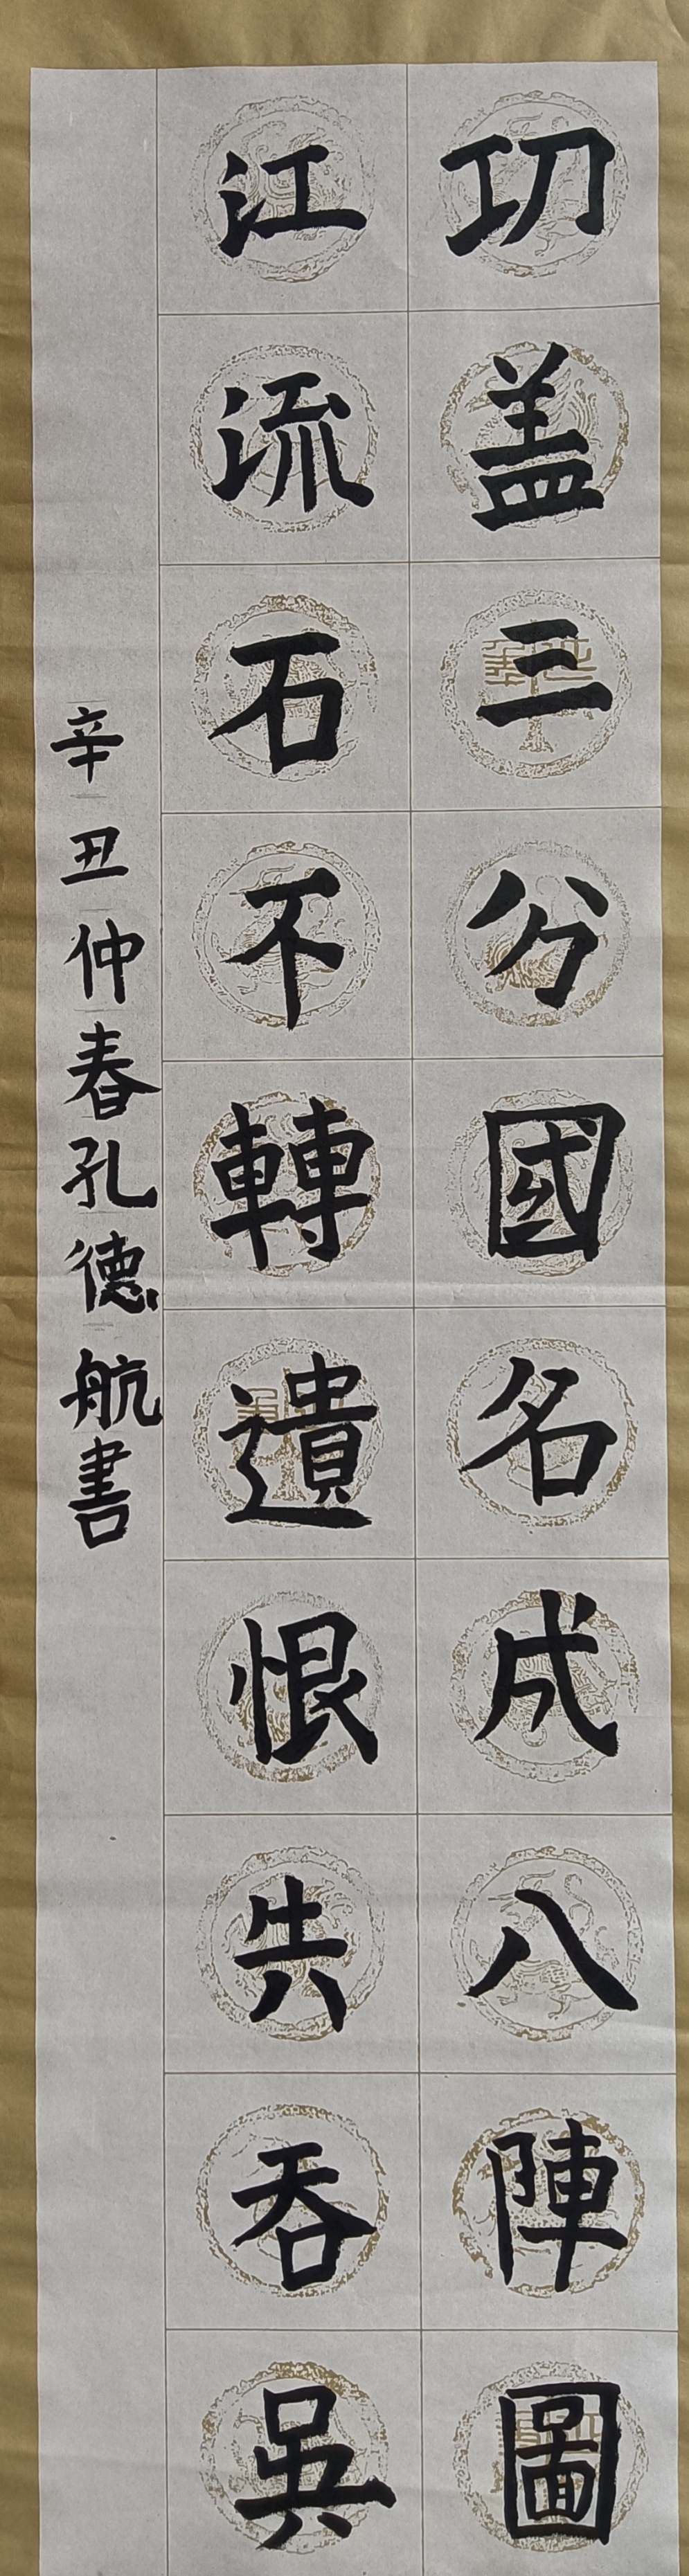 功盖三分國名成八陣圖
江流石不轉遺恨失吞吳
辛丑仲春孔德航書